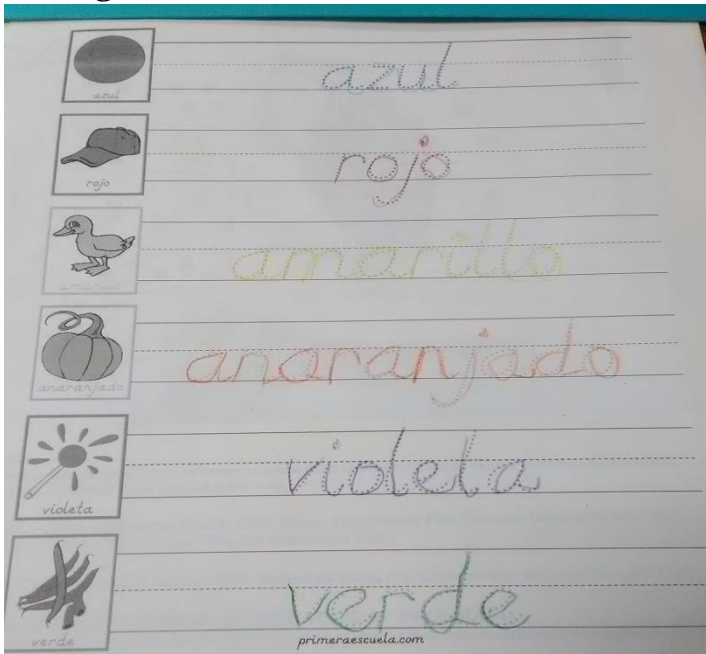 azul
azul
rojo
rojo
amarillo
amarillo
anaranjado
anaranjado
violeta
violeta
verde
verde
primeraescuela.com